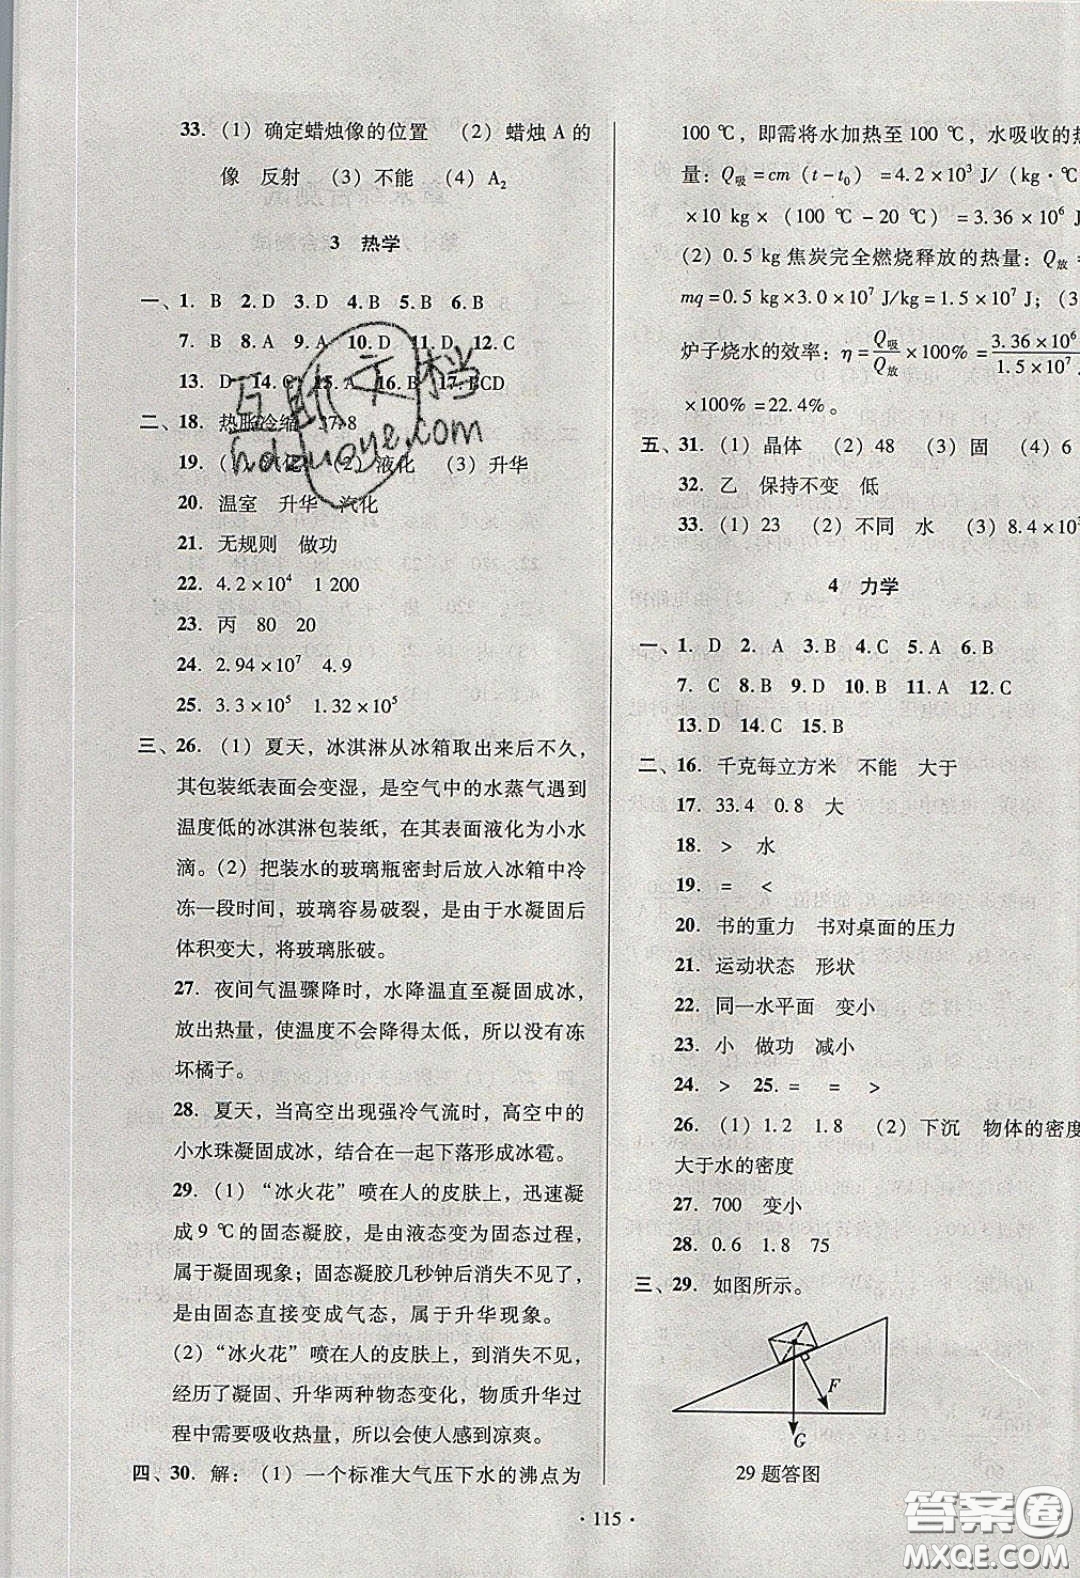 33. (1) 确定蜡烛像的位置 (2) 蜡烛 A 的
像 反射 (3) 不能 (4) A₂
3 热学
一、1. B 2. D 3. D 4. B 5. B 6. B
7. B 8. A 9. A 10. D 11. D 12. C
13. D 14. C 15. A 16. B 17. BCD
二、18. 热胀冷缩 37.8
19. (2) 液化 (3) 升华
20. 温室 升华 汽化
21. 无规则 做功
22. 4.2×10⁴ 1 200
23. 丙 80 20
24. 2.94×10⁷ 4.9
25. 3.3×10⁵ 1.32×10⁵
三、26. (1) 夏天，冰淇淋从冰箱取出来后不久，
其包装纸表面会变湿，是空气中的水蒸气遇到
温度低的冰淇淋包装纸，在其表面液化为小水
滴。(2) 把装水的玻璃瓶密封后放入冰箱中冷
冻一段时间，玻璃容易破裂，是由于水凝固后
体积变大，将玻璃胀破。
27. 夜间气温骤降时，水降温直至凝固成冰，
放出热量，使温度不会降得太低，所以没有冻
坏橘子。
28. 夏天，当高空出现强冷气流时，高空中的
小水珠凝固成冰，结合在一起下落形成冰雹。
29. (1) “冰火花”喷在人的皮肤上，迅速凝
成 9 ℃的固态凝胶，是由液态变为固态过程，
属于凝固现象；固态凝胶几秒钟后消失不见了，
是由固态直接变成气态，属于升华现象。
(2) “冰火花”喷在人的皮肤上，到消失不见，
经历了凝固、升华两种物态变化，物质升华过
程中需要吸收热量，所以会使人感到凉爽。
四、30. 解：(1) 一个标准大气压下水的沸点为
100 ℃，即需将水加热至 100 ℃，水吸收的热
量：Q吸=cm (t-t₀) =4.2×10³ J/ (kg·℃
×10 kg× (100 ℃-20 ℃) =3.36×10⁶ J
(2) 0.5 kg 焦炭完全燃烧释放的热量：Q放=
mq=0.5 kg×3.0×10⁷ J/kg=1.5×10⁷ J；(3
炉子烧水的效率：η=Q吸/Q放×100%=3.36×10⁶/1.5×10⁷ J
×100%=22.4%。
五、31. (1) 晶体 (2) 48 (3) 固 (4) 6
32. 乙 保持不变 低
33. (1) 23 (2) 不同 水 (3) 8.4×10³
4 力学
一、1. D 2. A 3. B 4. C 5. A 6. B
7. C 8. B 9. D 10. B 11. A 12. C
13. D 14. C 15. B
二、16. 千克每立方米 不能 大于
17. 33.4 0.8 大
18. > 水
19. = <
20. 书的重力 书对桌面的压力
21. 运动状态 形状
22. 同一水平面 变小
23. 小 做功 减小
24. > 25. = = >
26. (1) 1.2 1.8 (2) 下沉 物体的密度
大于水的密度
27. 700 变小
28. 0.6 1.8 75
三、29. 如图所示。
F
G
29 题答图
· 115 ·
互助文档
hdzuoye.com
答案圈
MXQE.COM